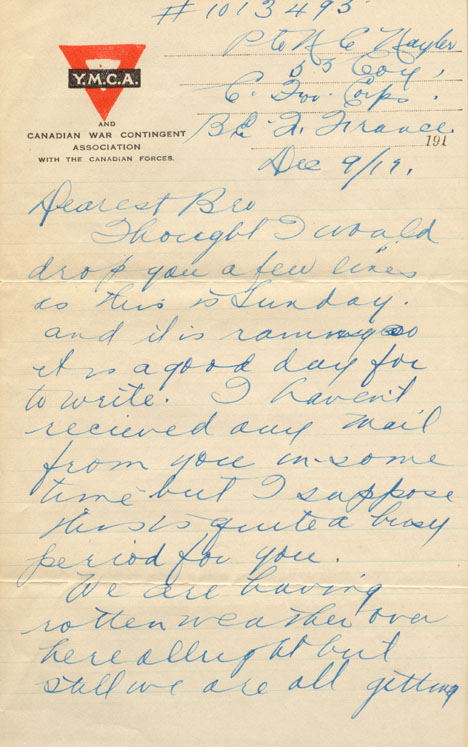 # 1013495
Pte N C Nayler
55 Coy,
C. For. Corps.
B.E.F. France.
191
Dec 9/17.
Y.M.C.A.
AND
CANADIAN WAR CONTINGENT
ASSOCIATION
WITH THE CANADIAN FORCES.
Dearest Bro
Thought I would
drop you a few lines
as this is Sunday.
and it is raining so
it is a good day for
to write. I haven't
recieved any mail
from you in some
time but I suppose
this is quite a busy
period for you.
We are having
rotten weather over
here allright but
still we are all getting